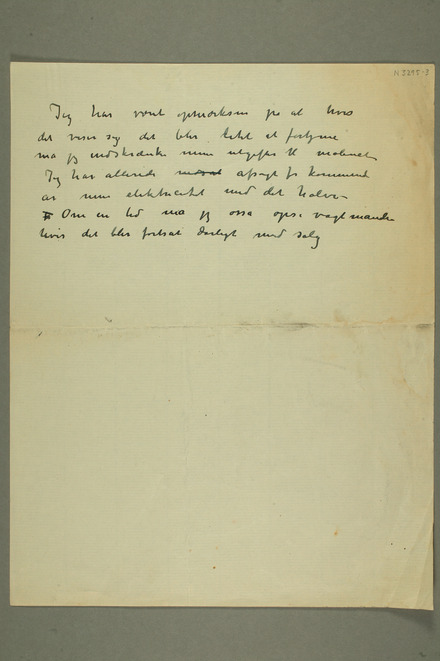 N 3295-3
Jeg har været opmerksom på at hvis
det viser sig det blir let at fortjene
må jeg indskrænke mine utgifter til
Jeg har allerede afsagt for kommende
år min elektricitet med det halve
Om en tid må jeg også opsi vagtmanden
hvis det blir fortsat dårligt med salg